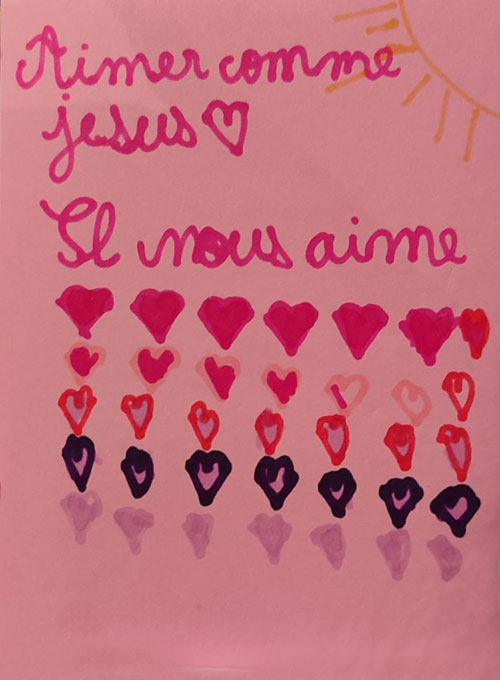 Aimer comme
jesus ♡
Il nous aime